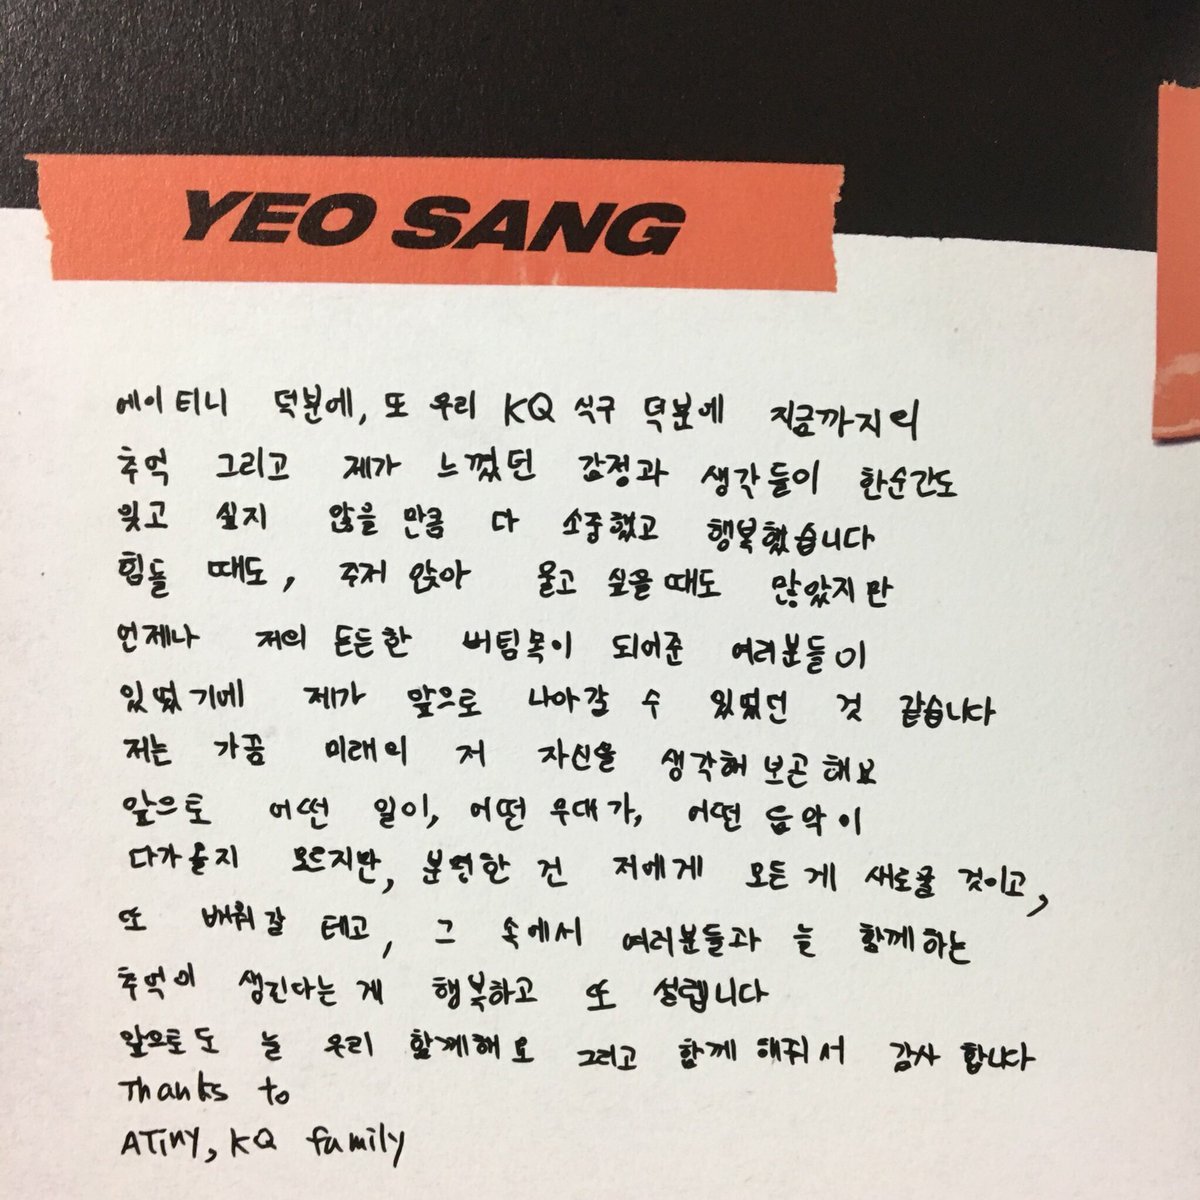 YEO SANG
에이티니 덕분에, 또 우리 KQ 식구 덕분에 지금까지의
추억 그리고 제가 느꼈던 감정과 생각들이 한순간도
잊고 싶지 않을 만큼 다 소중했고 행복했습니다
힘들 때도, 주저 앉아 울고 싶을 때도 많았지만
언제나 저의 든든한 버팀목이 되어준 여러분들이
있었기에 제가 앞으로 나아갈 수 있었던 것 같습니다
저는 가끔 미래의 저 자신을 생각해 보곤 해요
앞으로 어떤 일이, 어떤 무대가, 어떤 음악이
다가올지 모르지만, 분명한 건 저에게 모든 게 새로울 것이고,
또 배워갈 테고, 그 속에서 여러분들과 늘 함께하는
추억이 생긴다는 게 행복하고 또 설렙니다
앞으로도 늘 우리 함께해요 그리고 함께 해줘서 감사합니다
Thanks to
ATiny, KQ family